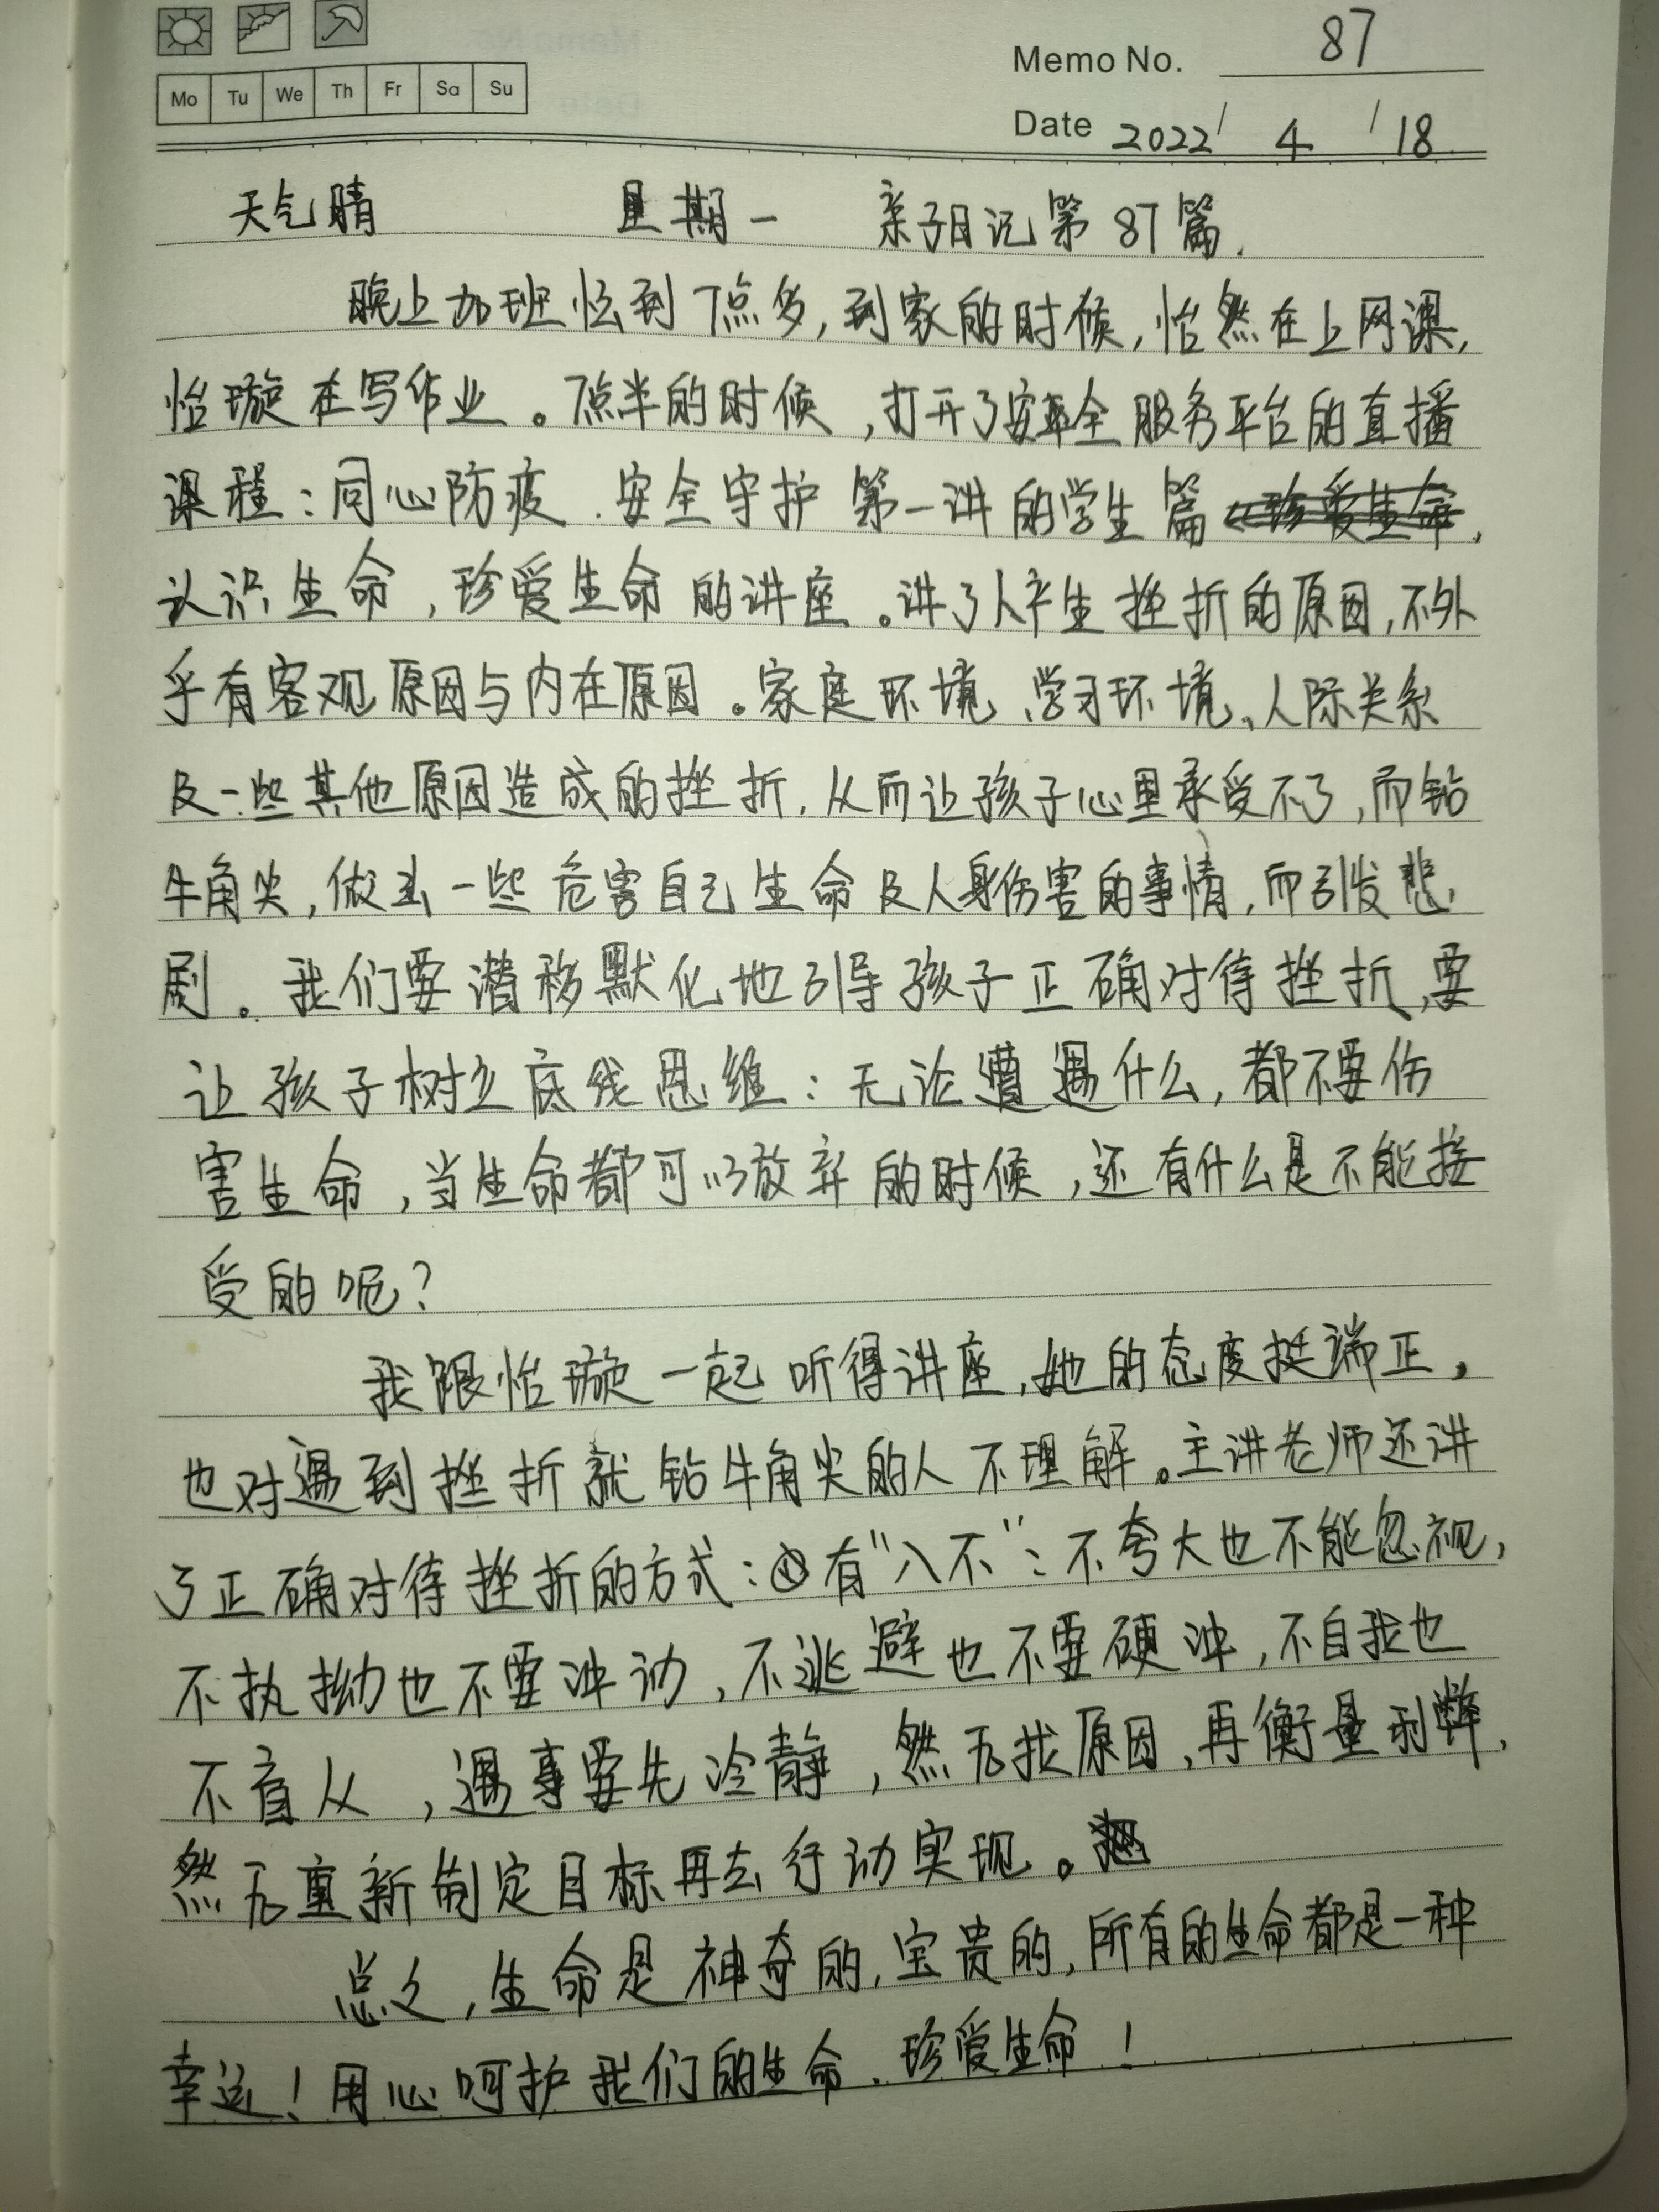 Memo No. 87
Mo Tu We Th Fr Sa Su
Date 2022/4/18
天气晴 星期一 亲子日记第87篇.
晚上加班忙到7点多,到家的时候,怡然在上网课,
怡璇在写作业。7点半的时候,打开了安全服务平台的直播
课程:同心防疫.安全守护 第一讲的学生篇
认识生命,珍爱生命的讲座。讲了人产生挫折的原因,不外
乎有客观原因与内在原因。家庭环境、学习环境、人际关系
及一些其他原因造成的挫折,从而让孩子心里承受不了,而钻
牛角尖,做出一些危害自己生命及人身伤害的事情,而引发悲
剧。我们要潜移默化地引导孩子正确对待挫折,要
让孩子树立底线思维:无论遭遇什么,都不要伤
害生命,当生命都可以放弃的时候,还有什么是不能接
受的呢?
我跟怡璇一起听得讲座,她的态度挺端正,
也对遇到挫折就钻牛角尖的人不理解。主讲老师还讲
了正确对待挫折的方式:有“八不”:不夸大也不能忽视,
不执拗也不要冲动,不逃避也不要硬冲,不自我也
不盲从,遇事要先冷静,然后找原因,再衡量利弊,
然后重新制定目标再去行动实现。
总之,生命是神奇的,宝贵的,所有的生命都是一种
幸运!用心呵护我们的生命.珍爱生命!